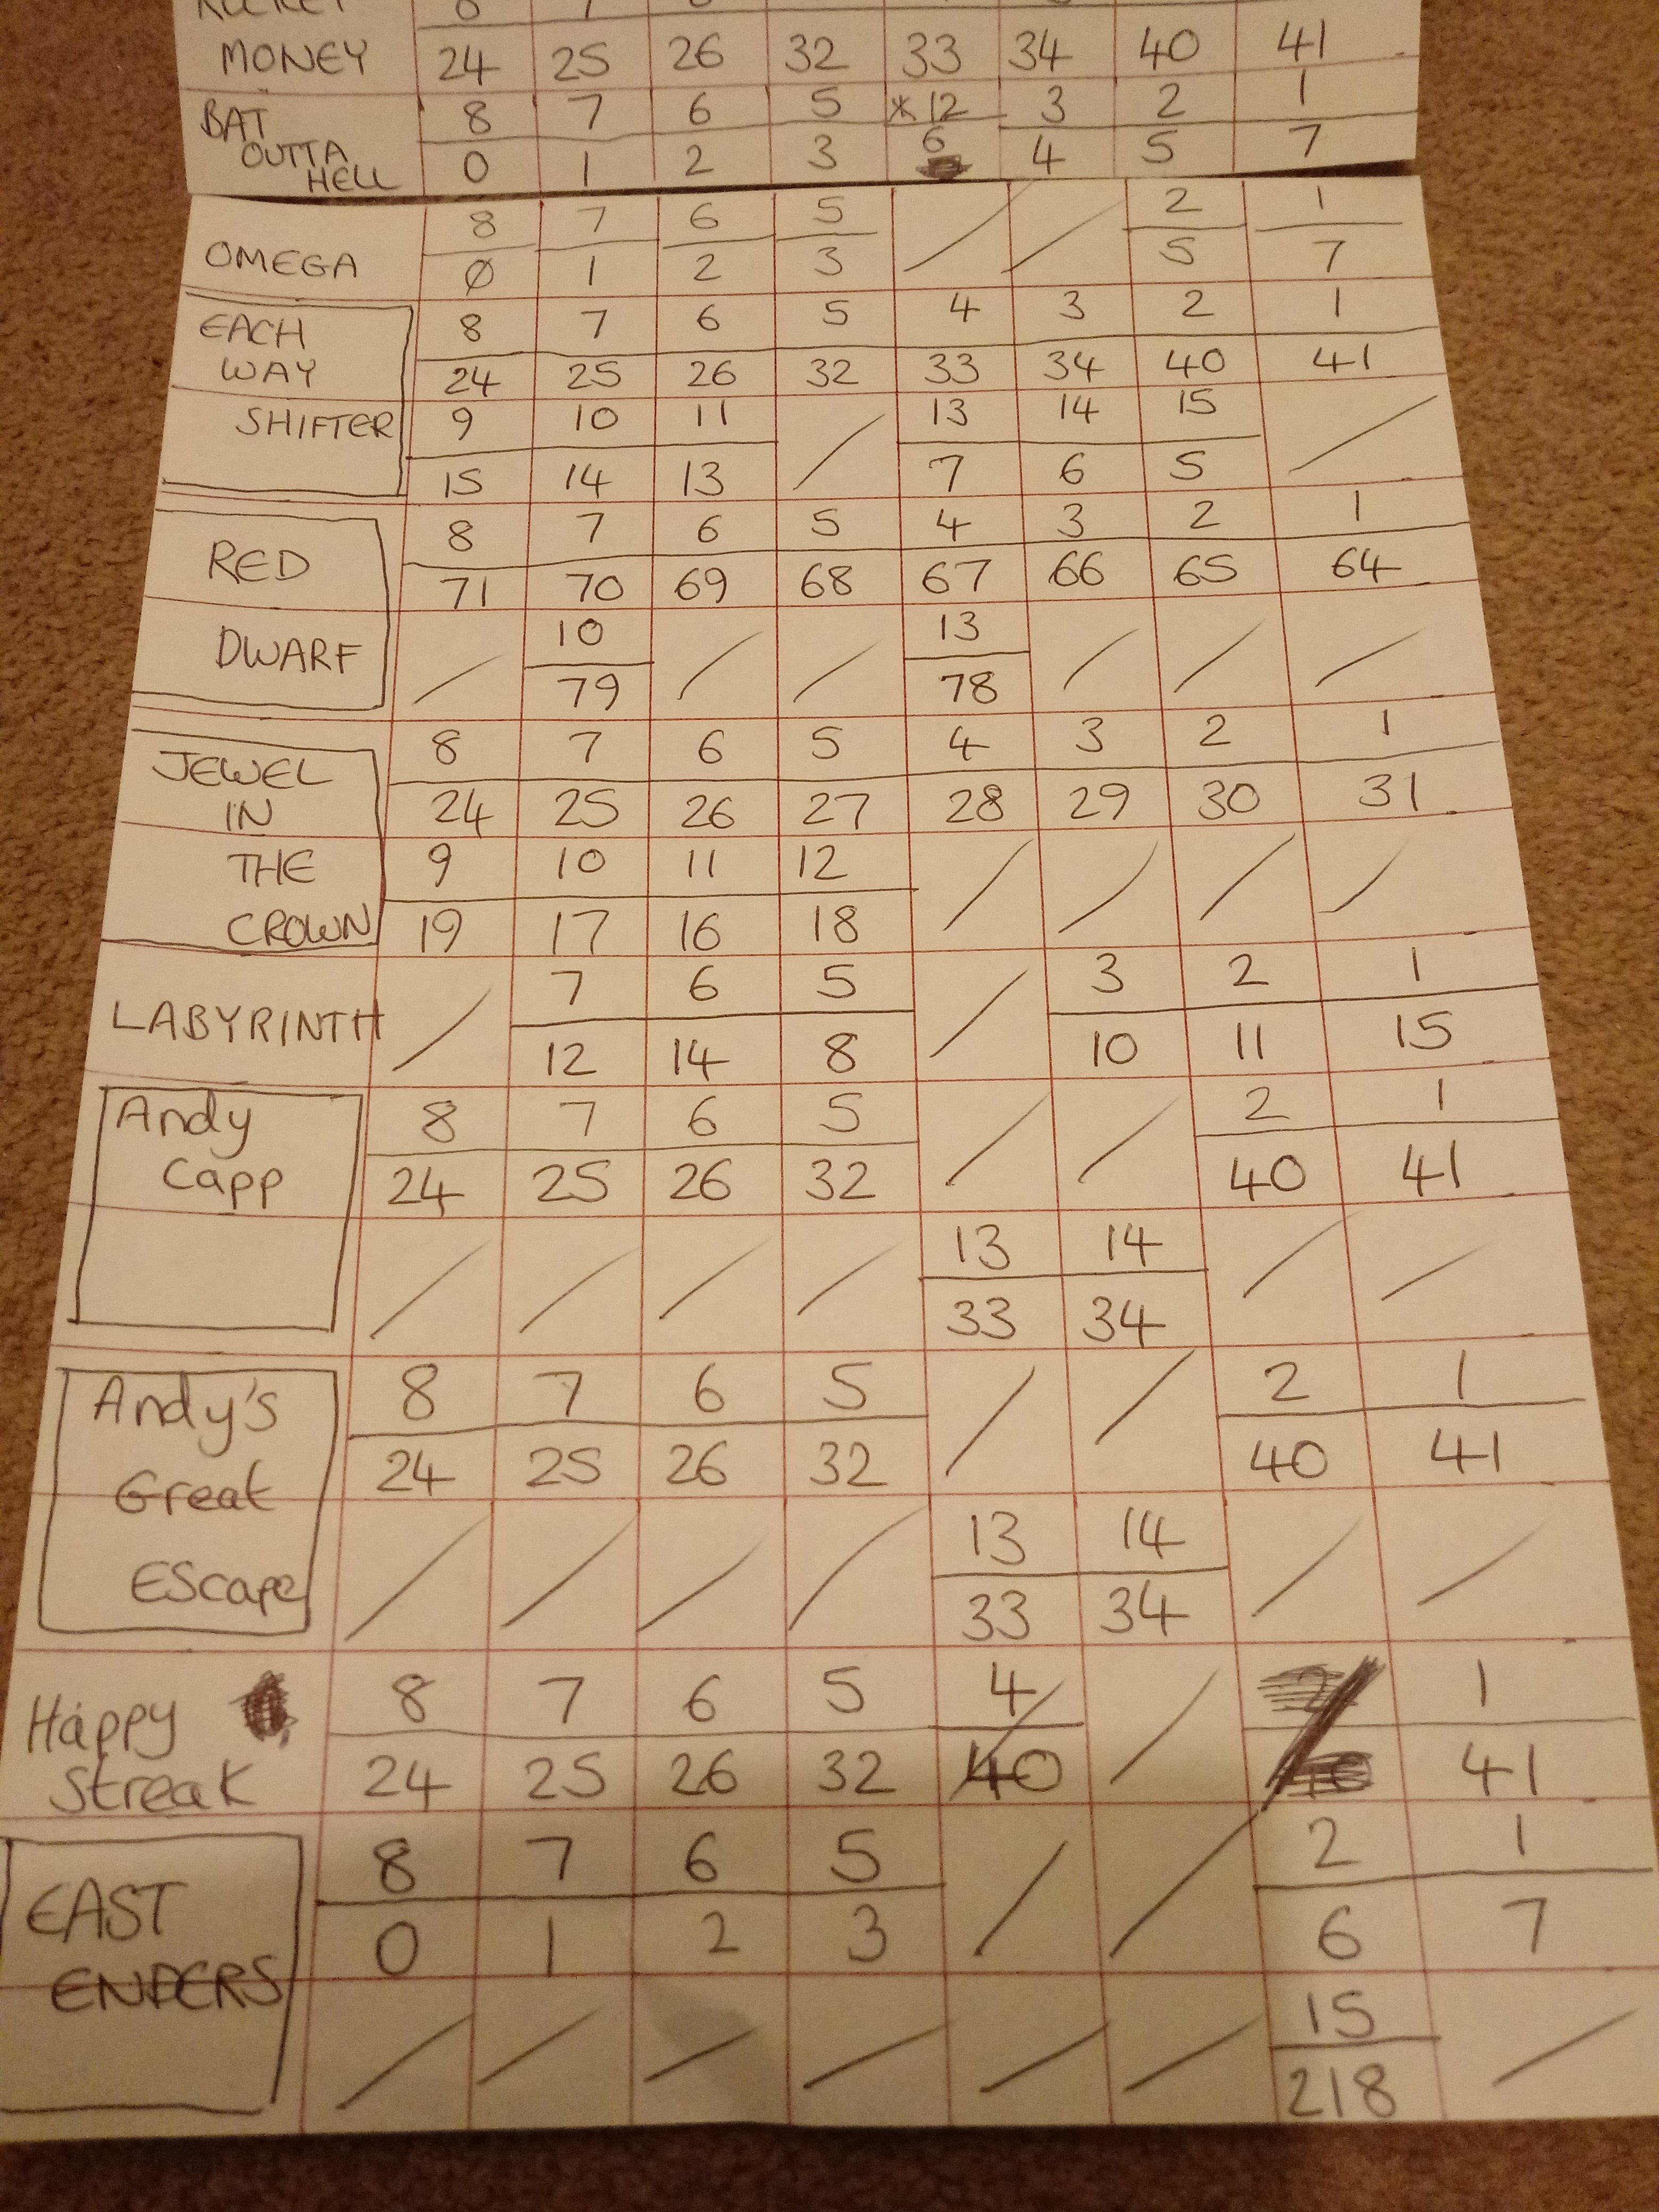 MONEY 24 25 26 32 33 34 40 41
BAT 8 7 6 5 *12 3 2 1
OUTTA HELL 0 1 2 3 6 4 5 7
8 7 6 5 / / 2 1
OMEGA Ø 1 2 3 5 7
EACH 8 7 6 5 4 3 2 1
WAY 24 25 26 32 33 34 40 41
SHIFTER 9 10 11 / 13 14 15 /
15 14 13 7 6 5
RED 8 7 6 5 4 3 2 1
71 70 69 68 67 66 65 64
DWARF / 10 / / 13 / / /
79 78
JEWEL 8 7 6 5 4 3 2 1
IN 24 25 26 27 28 29 30 31
THE 9 10 11 12 / / / /
CROWN 19 17 16 18
LABYRINTH / 7 6 5 / 3 2 1
12 14 8 10 11 15
Andy 8 7 6 5 / / 2 1
Capp 24 25 26 32 40 41
/ / / / 13 14 / /
33 34
Andy's 8 7 6 5 / / 2 1
Great 24 25 26 32 40 41
Escape / / / / 13 14 / /
33 34
Happy 8 7 6 5 4 / 1
Streak 24 25 26 32 40 41
EAST 8 7 6 5 / / 2 1
0 1 2 3 6 7
ENDERS / / / / / / 15 /
218